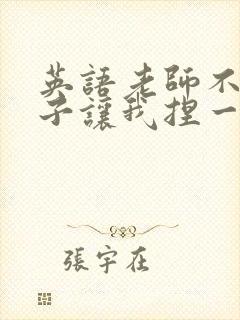 英語老師不
子讓我捏一
張宇在